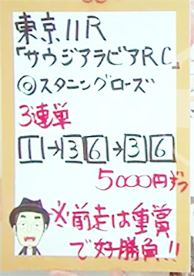 東京11R
「サウジアラビアRC」
◎スタニングローズ
3連単
1→36→36
5000円ズラ
※前走は重賞
で好勝負!!